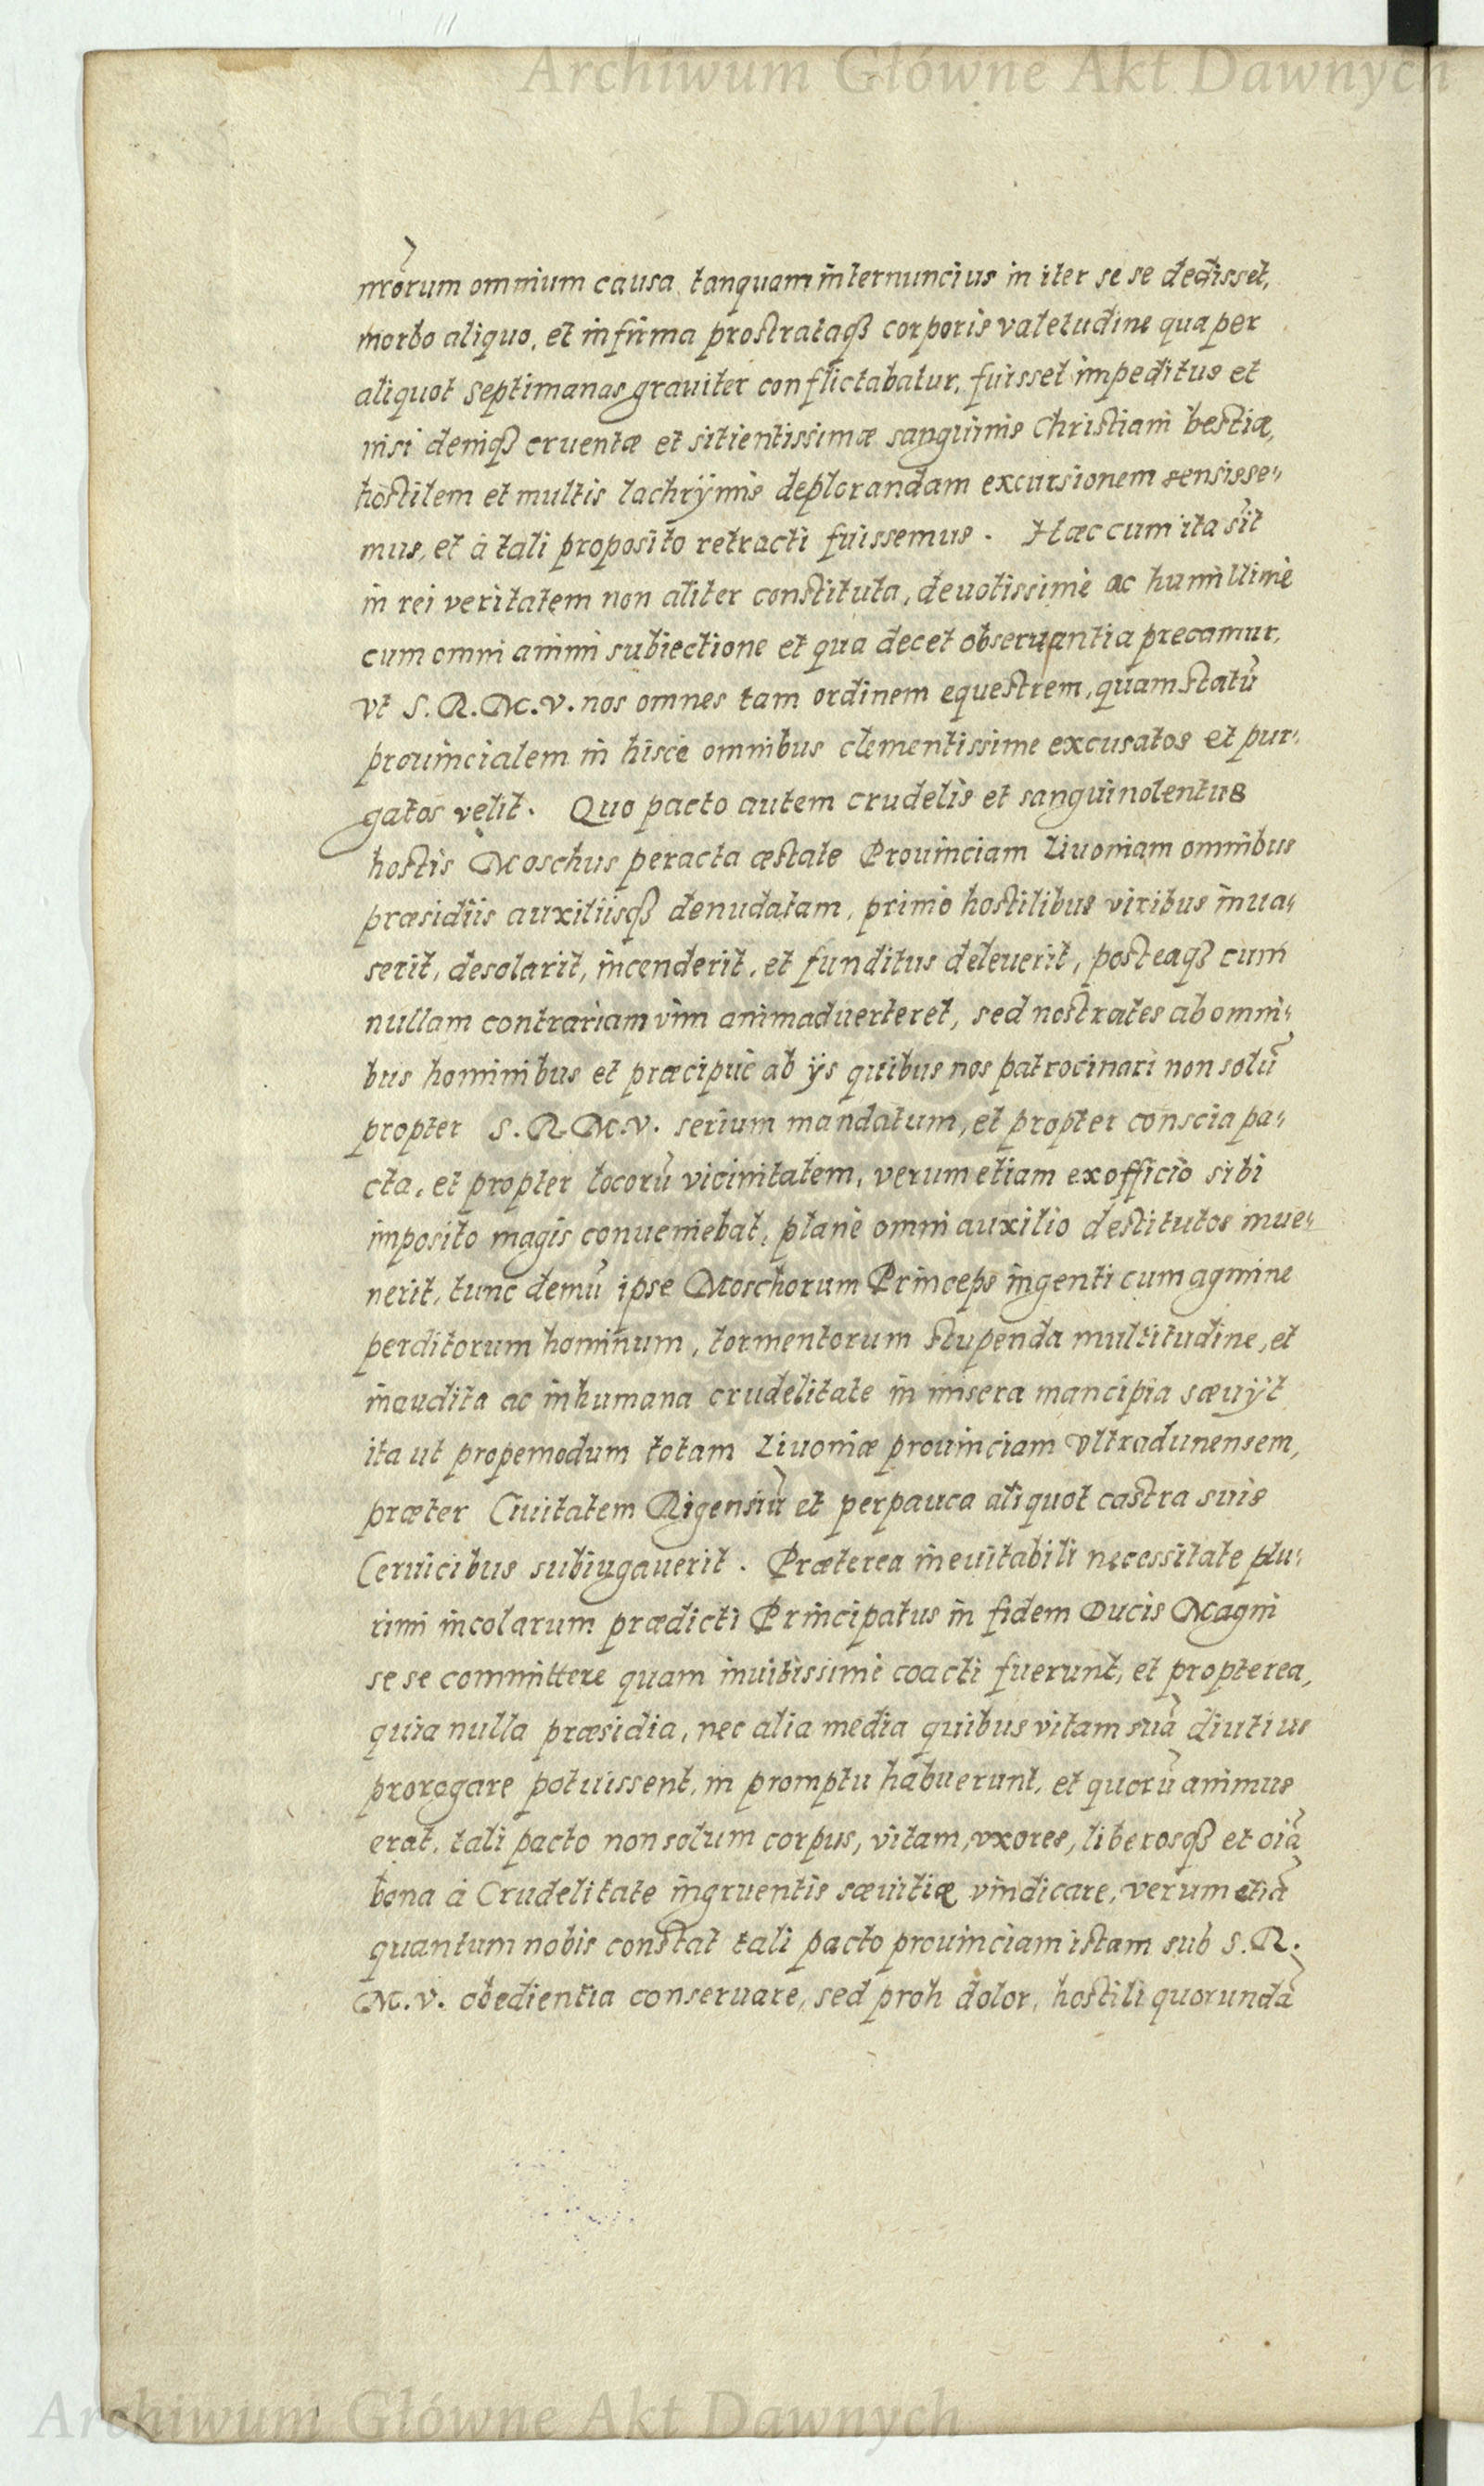 Archiwum Główne Akt Dawnych
nr̃orum omnium causa tanquam internuncius in iter se se dedisset,
morbo aliquo, et infirma prostrataqꝫ corporis valetudine qua per
aliquot septimanas grauiter conflictabatur, fuisset impeditus et
nisi deniqꝫ cruentæ et sitientissimæ sanguinis Christiani bestiæ,
hostilem et multis lachrÿmis deplorandam excursionem sensisse⸗
mus, et à tali proposito retracti fuissemus. Hæc cum ita sit
in rei veritatem non aliter constituta, deuotissimè ac humillimè
cum omni animi subiectione et qua decet obseruantia precamur,
vt S. R. M. V. nos omnes tam ordinem equestrem, quam statũ
prouincialem in hisce omnibus clementissime excusatos et pur⸗
gatos velit. Quo pacto autem crudelis et sanguinolentus
hostis Moschus peracta æstate Prouinciam Liuoniam omnibus
præsidiis auxiliisqꝫ denudatam, primò hostilibus viribus inua⸗
serit, desolarit, incenderit, et funditus deleuerit, posteaqꝫ cum
nullam contrariam vim animaduerteret, sed nostrates ab omni⸗
bus hominibus et præcipuè ab ijs quibus nos patrocinari non solũ
propter S. R. M. V. serium mandatum, et propter conscia pa⸗
cta, et propter locorũ vicinitatem, verum etiam ex officio sibi
imposito magis conueniebat, planè omni auxilio destitutos inue⸗
nerit, tunc demũ ipse Moschorum Princeps ingenti cum agmine
perditorum hominum, tormentorum stupenda multitudine, et
inaudita ac inhumana crudelitate in misera mancipia sæuÿt
ita ut propemodum totam Liuoniæ prouinciam Vltradunensem,
præter Ciuitatem Rigensiũ et perpauca aliquot castra suis
Ceruicibus subiugauerit. Præterea ineuitabili necessitate plu⸗
rimi incolarum prædicti Principatus in fidem Ducis Magni
se se committere quam inuitissimè coacti fuerunt, et propterea,
quia nulla præsidia, nec alia media quibus vitam suã diutius
prorogare potuissent, in promptu habuerunt, et quorũ animus
erat, tali pacto non solum corpus, vitam, vxores, liberosqꝫ et oĩa
bona à Crudelitate ingruentis sæuitiæ vindicare, verum etiã
quantum nobis constat tali pacto prouinciam istam sub S. R.
M. V. obedientia conseruare, sed proh dolor, hostili quorundã
Archiwum Główne Akt Dawnych